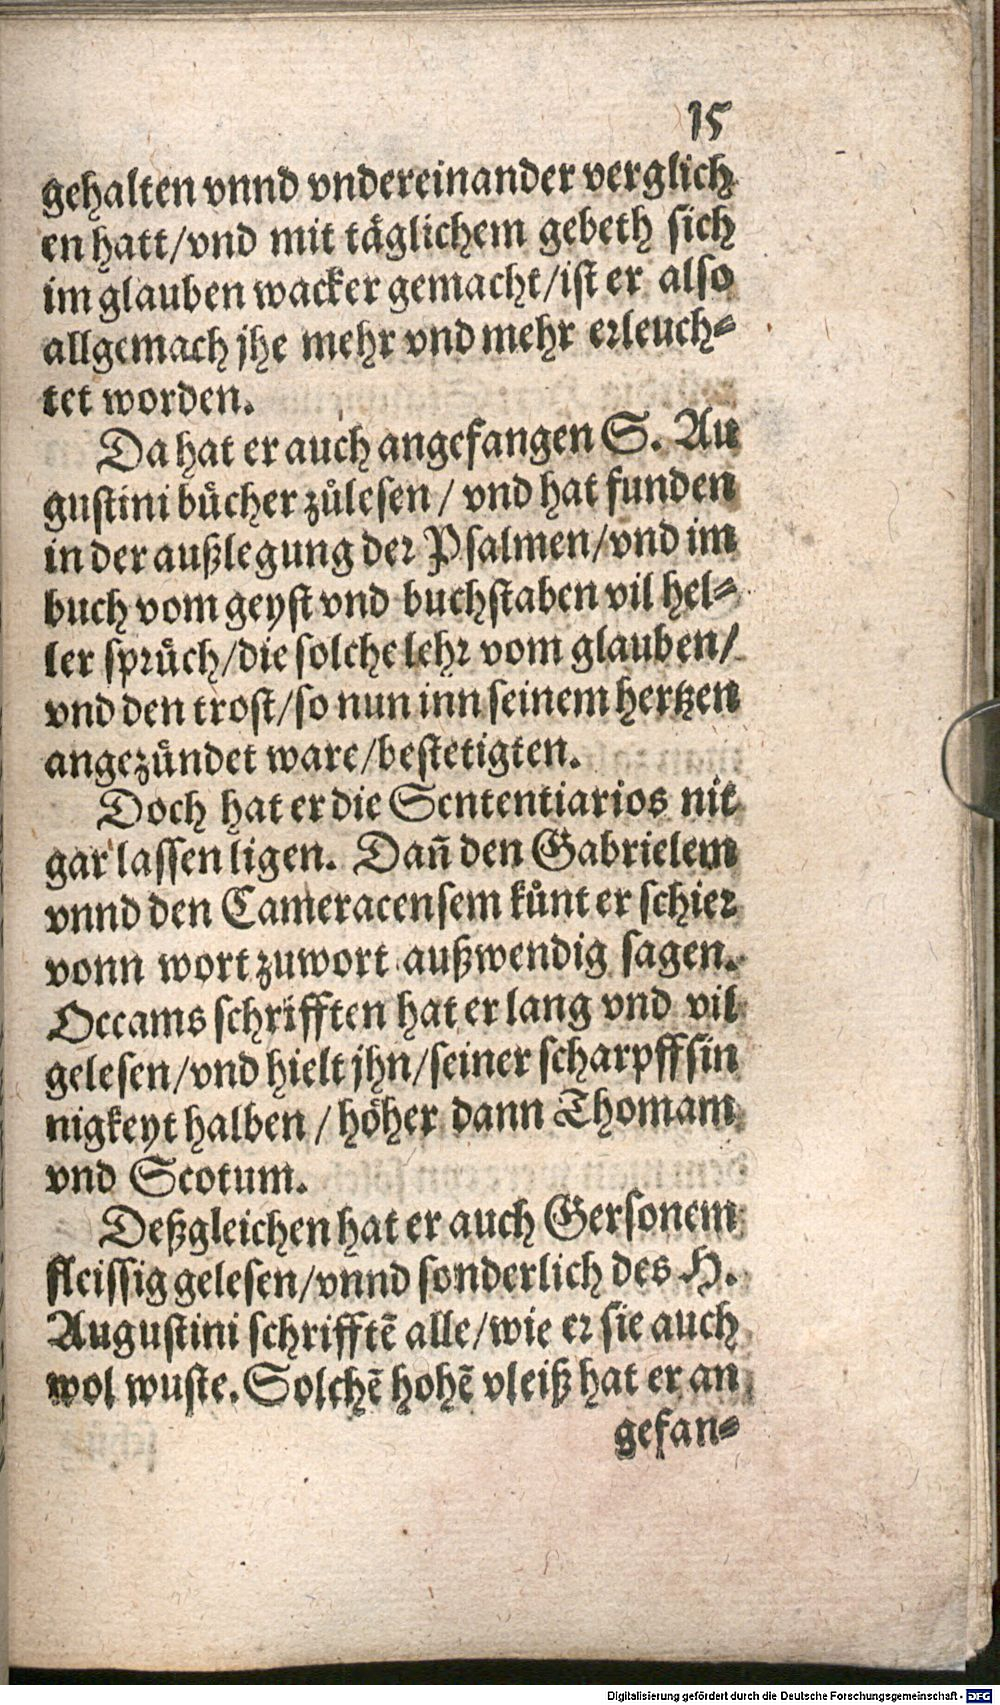 15
gehalten vnnd vndereinander verglich
en hatt/vnd mit täglichem gebeth sich
im glauben wacker gemacht/ist er also
allgemach jhe mehr vnd mehr erleuch⸗
tet worden.
Da hat er auch angefangen S. Au
gustini bücher zůlesen / vnd hat funden
in der außlegung der Psalmen/vnd im
buch vom geyst vnd buchstaben vil hel⸗
ler sprüch/die solche lehr vom glauben/
vnd den trost/so nun inn seinem hertzen
angezündet ware/bestetigten.
Doch hat er die Sententiarios nit
gar lassen ligen. Dañ den Gabrielem
vnnd den Cameracensem künt er schier
vonn wort zuwort außwendig sagen.
Occams schrifften hat er lang vnd vil
gelesen/vnd hielt jhn/seiner scharpffsin
nigkeyt halben / höher dann Thomam
vnd Scotum.
Deßgleichen hat er auch Gersonem
fleissig gelesen/vnnd sonderlich des H.
Augustini schrifftē alle/wie er sie auch
wol wuste. Solchē hohē vleiß hat er an
gefan⸗
Digitalisierung gefördert durch die Deutsche Forschungsgemeinschaft - DFG